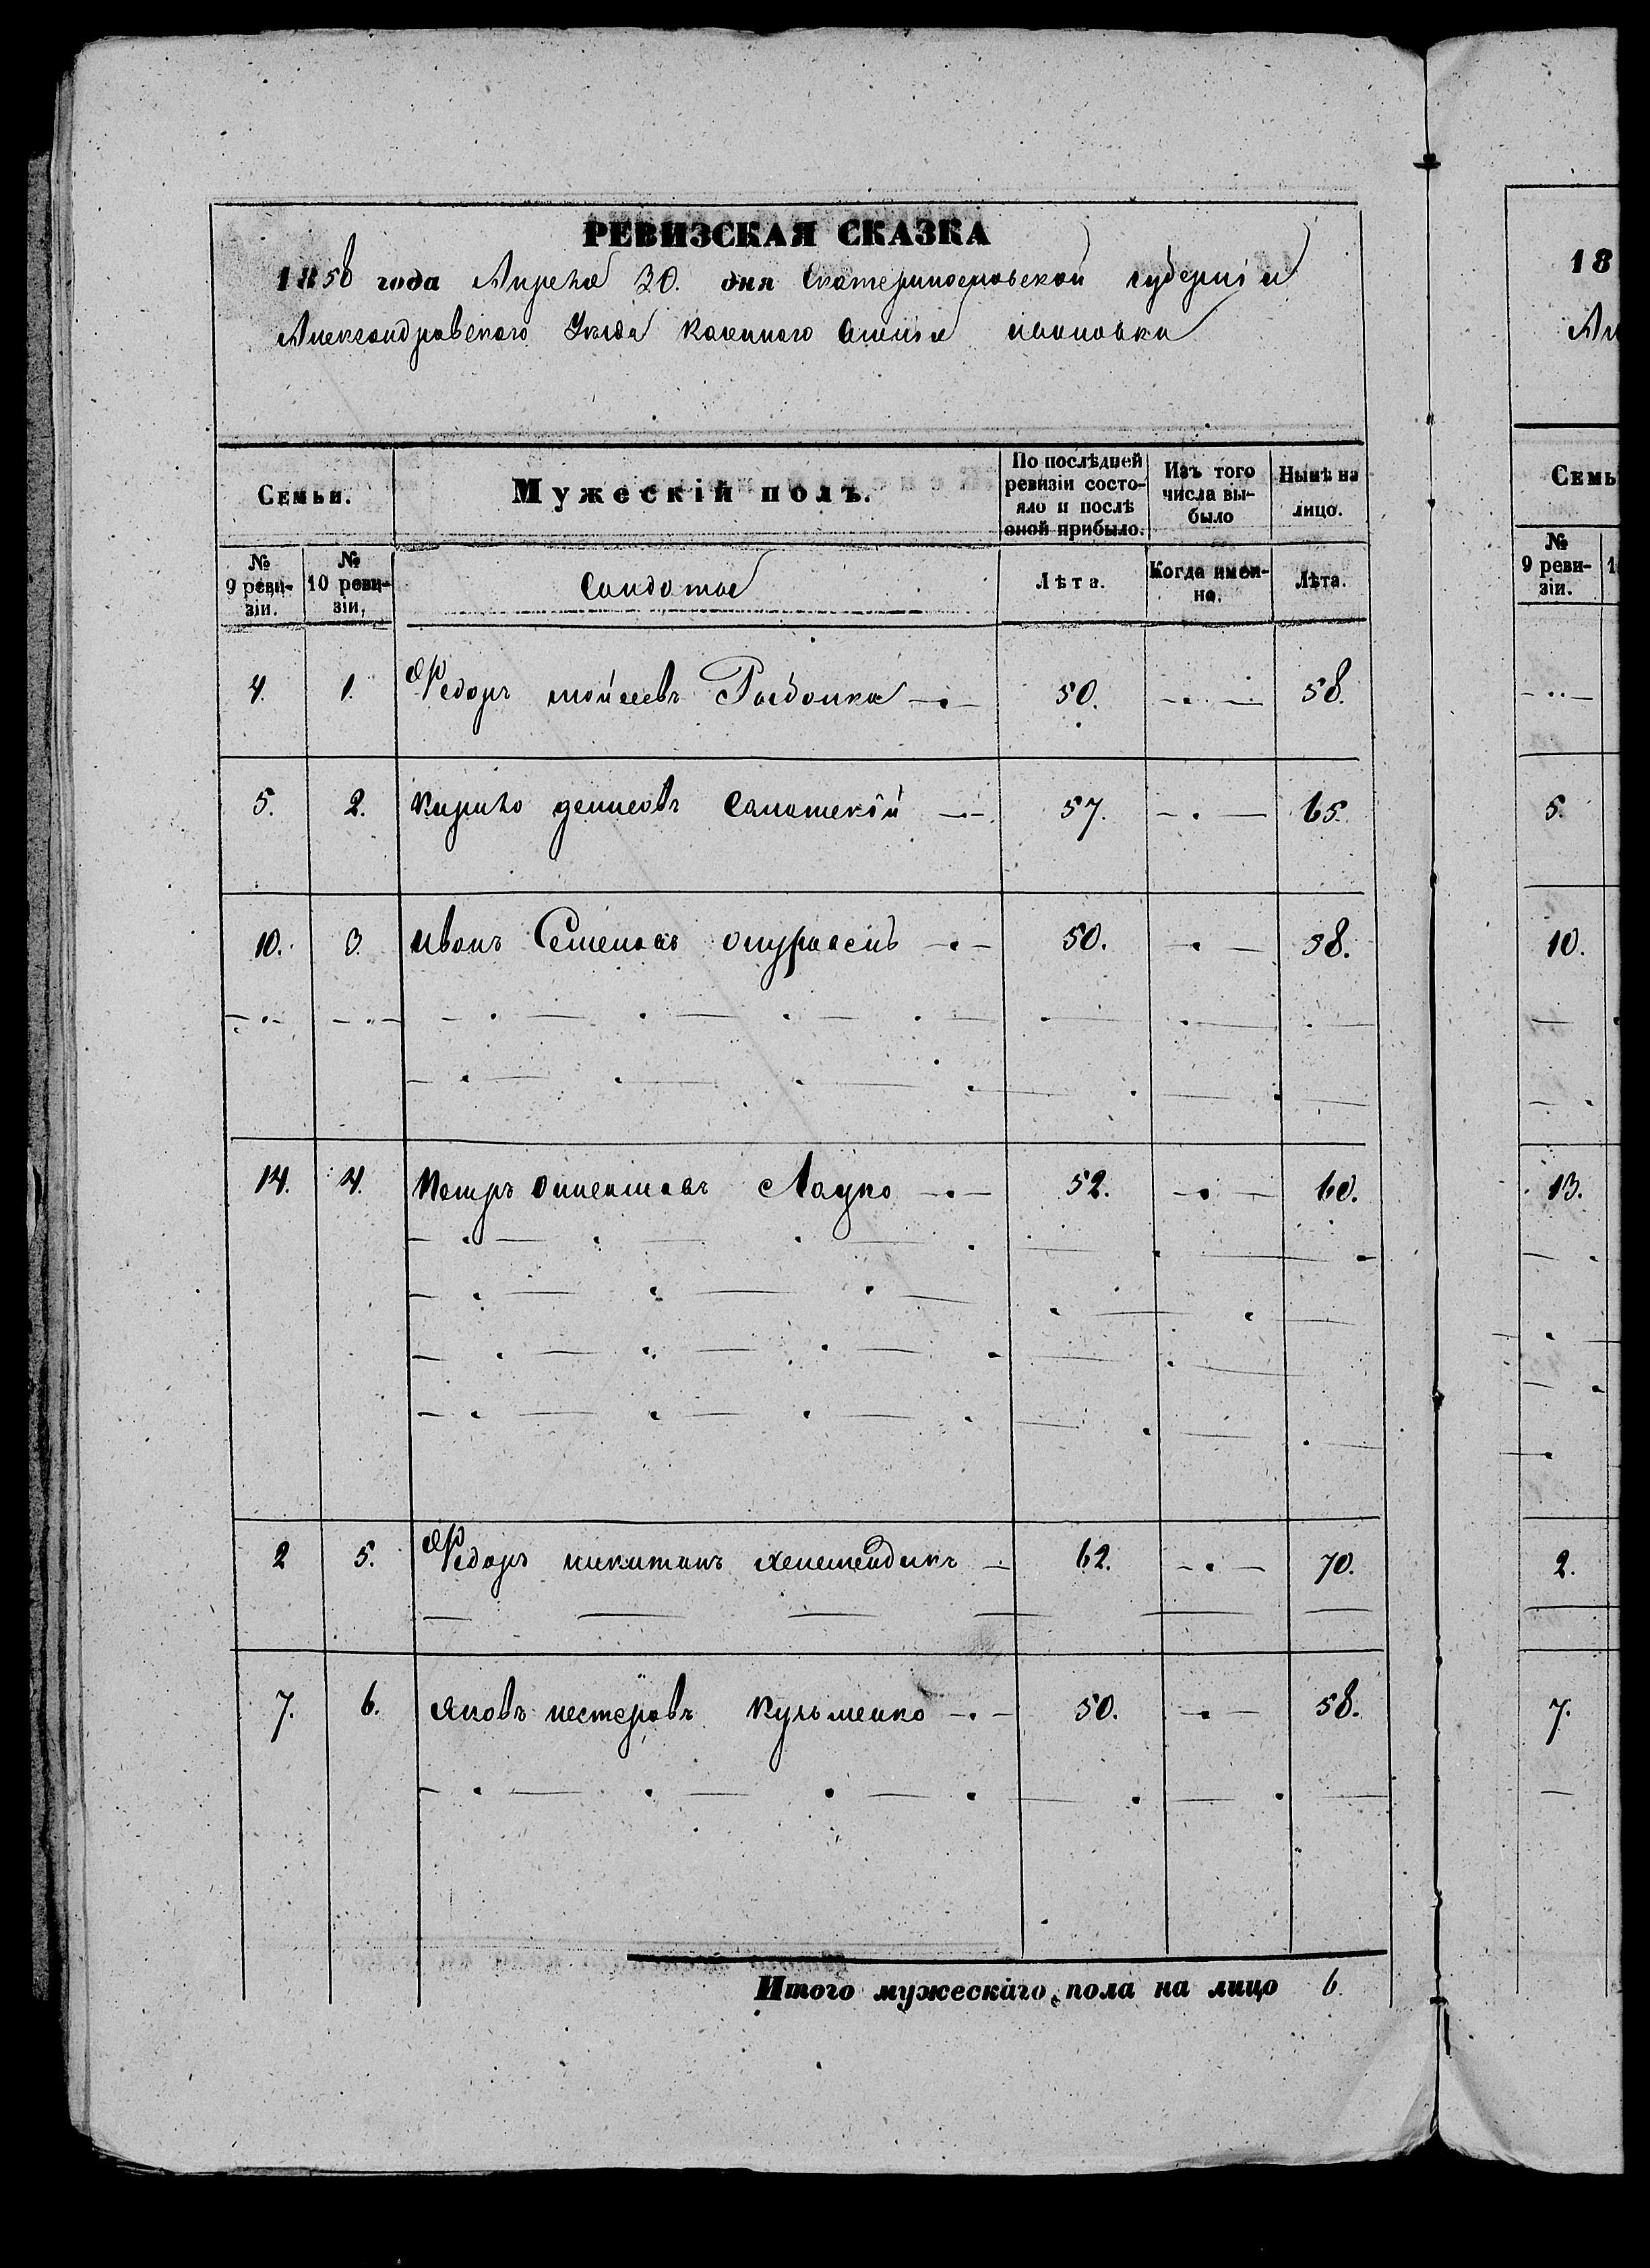 РЕВИЗСКАЯ СКАЗКА
1858 года Апреля 30. дня Екатеринославской губернии
Александровского Уезда Казенного
Семьи.
Мужескій полъ.
По послѣдней ревизіи состояло и послѣ оной прибыло.
Изъ того числа выбыло
Нынѣ на лицо.
№ 9 ревизіи.
№ 10 ревизіи.
Солдаты
Лѣта.
Когда именно.
Лѣта.
4. 1. Федоръ мойсеевъ 50. 58.
5. 2. Кирило денисовъ 57. 65.
10. 3. Иванъ Семеновъ 50. 58.
14. 4. Петръ 52. 60.
2 5. Федоръ никитинъ 62. 70.
7. 6. Яковъ нестеровъ Кузьменко 50. 58.
Итого мужескаго пола на лицо 6.
18
Семь
№ 9 ревизіи.
5.
10.
13.
2.
7.